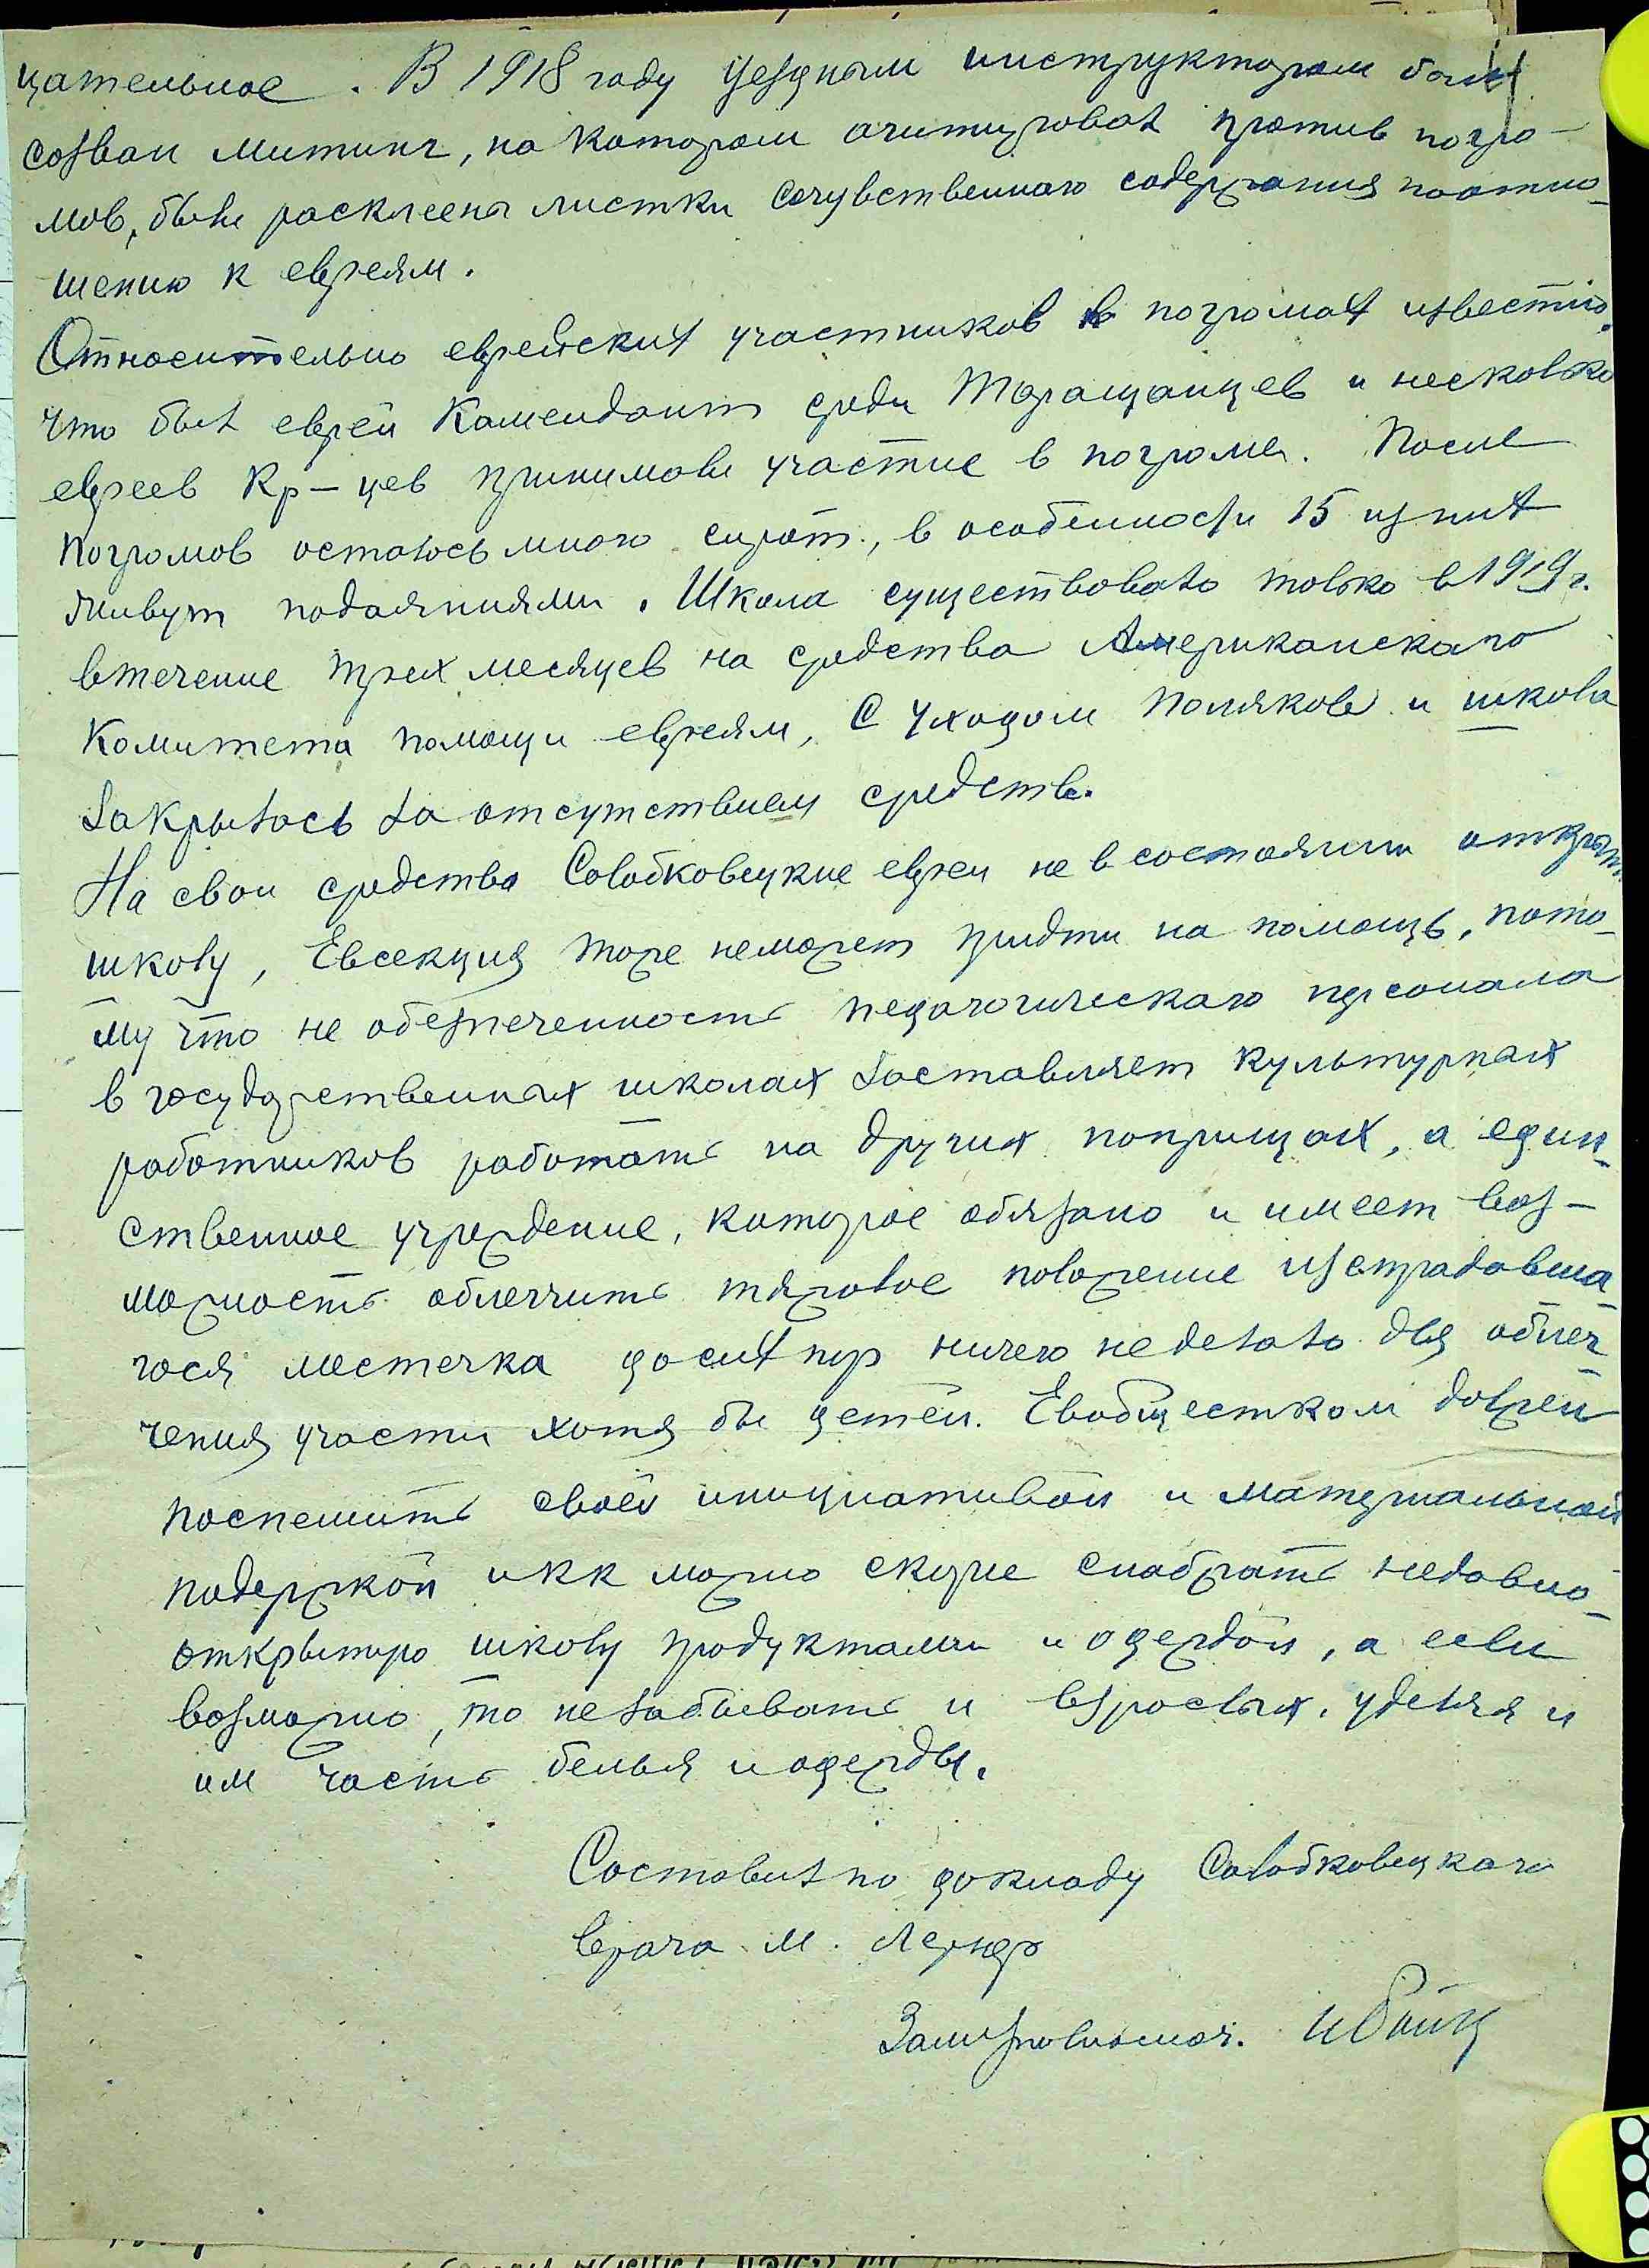 цательное. В 1918 году Уездным инструктором был
созван митинг, на котором агитировал против погро-
мов, были расклеены листки сочувственного содержания поотно-
шению к евреям.
Относительно еврейских участников в погромах известно,
что был еврей Комендант среди Таращанцев и несколько
евреев Кр-цев принимали участие в погроме. После
погромов осталось много сирот, в особенности 15 из них
живут подаяниями. Школа существовала только в 1919 г.
втечение трех месяцев на средства Американскаго
Комитета помощи евреям, С уходом Поляков и школа
закрылась за отсутствием средств.
На свои средства Солобковецкие евреи не в состоянии открыть
школу, Евсекция тоже неможет придти на помощь, пото-
му что не обезпеченность педагогическаго персонала
в государственных школах заставляет культурных
работников работать на других поприщах, а един-
ственное учреждение, которое обязано и имеет воз-
можность облегчить тяжолое положение изстрадавша-
гося местечка досих пор ничего неделало для облег-
чения участи хотя бы детей. Евобщестком должен
поспешить своей инициативой и материальной
подержкой и кк можно скорие снабжать недавно-
открытую школу продуктами и одеждой, а если
возможно, то незабывать и взрослых, уделяя и
им часть белья и одежды.
Составил по докладу Солобковецкаго
Врача М.
Зам